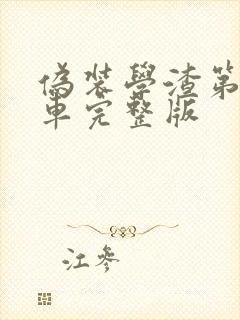 偽装學渣第
車完整版
江參